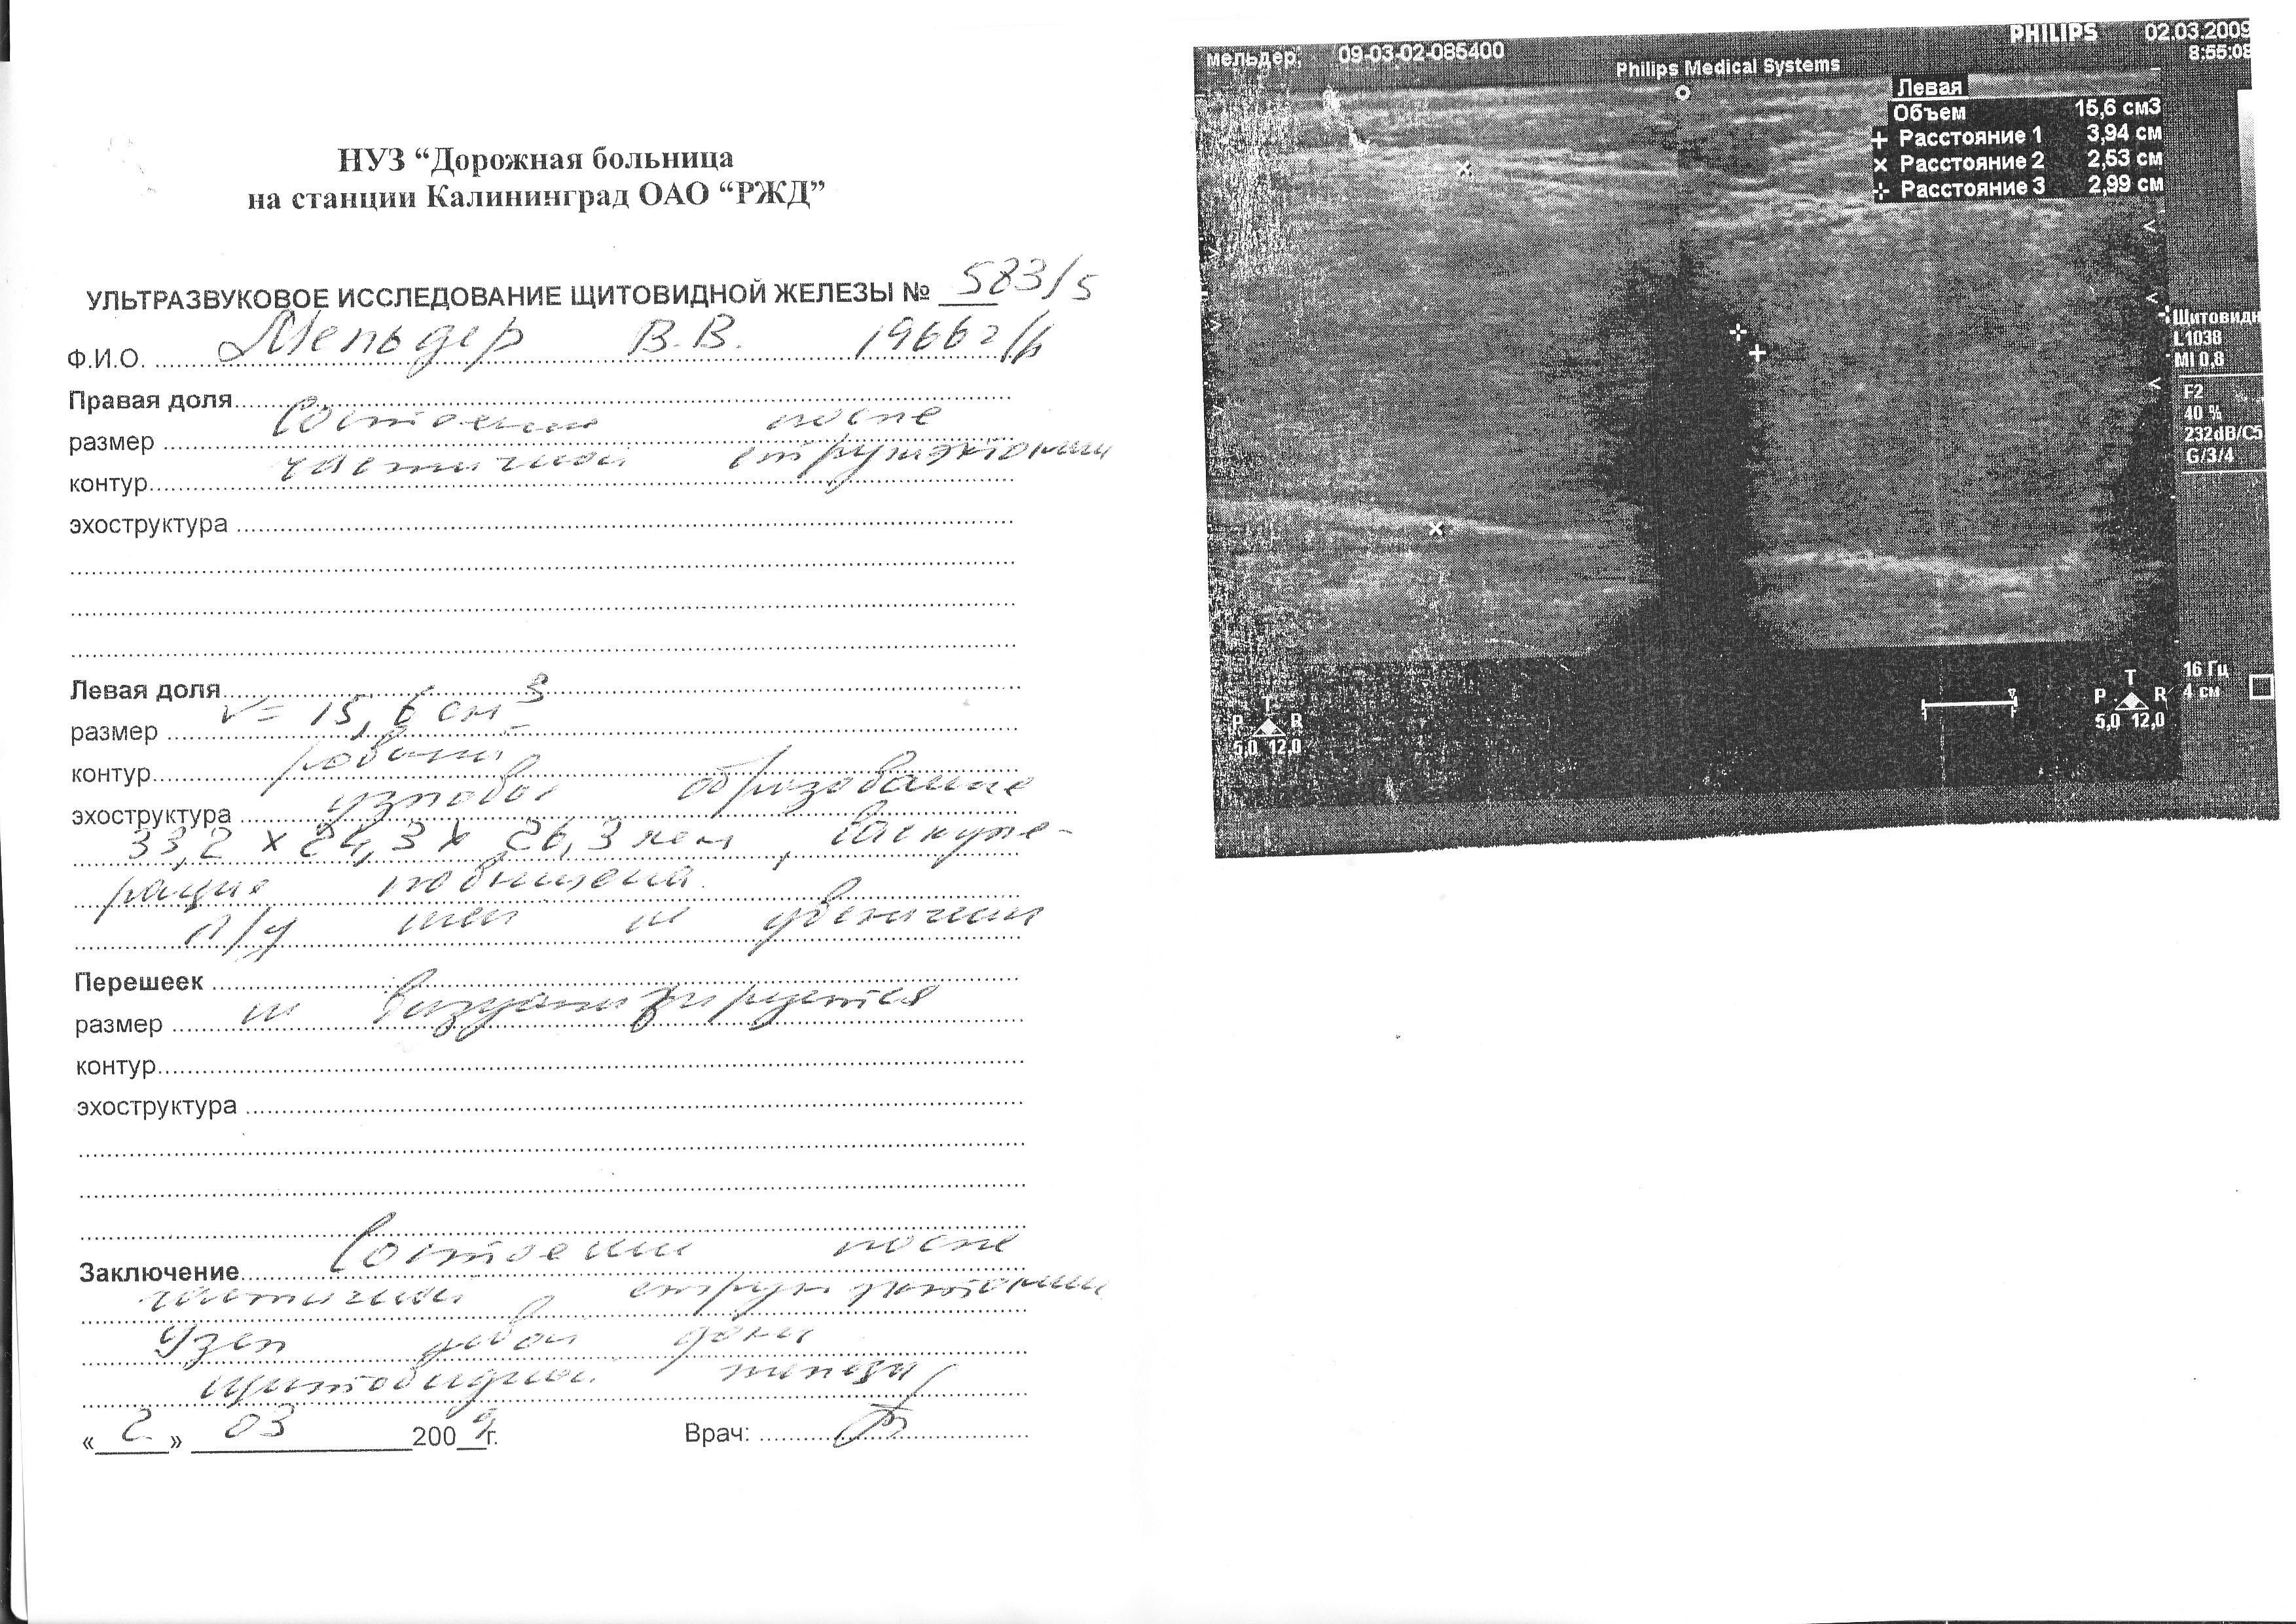 НУЗ “Дорожная больница
на станции Калининград ОАО “РЖД”
УЛЬТРАЗВУКОВОЕ ИССЛЕДОВАНИЕ ЩИТОВИДНОЙ ЖЕЛЕЗЫ № 583/5
Ф.И.О. Мельдер В.В. 1966 г/р
Правая доля
Состояние после
размер
частичной струмэктомии
контур
эхоструктура
Левая доля
размер V= 15,6 см³
контур ровный
эхоструктура узловое образование
33,2 х 24,3 х 26,3 мм, васкуля-
рация повышена.
л/у шеи не увеличены
Перешеек
размер не визуализируется
контур
эхоструктура
Заключение Состояние после
частичной струмэктомии
Узел левой доли
щитовидной железы
« 2 » 03 2009г. Врач:
мельдер, 09-03-02-085400
PHILIPS 02.03.2009
Philips Medical Systems 8:55:08
Левая
Объем 15,6 см3
+ Расстояние 1 3,94 см
× Расстояние 2 2,53 см
Расстояние 3 2,99 см
Щитовидн
L1038
MI 0,8
F2
40 %
232dB/C5
G/3/4
16 Гц
4 см
T
P R
5,0 12,0
T
P R
5,0 12,0